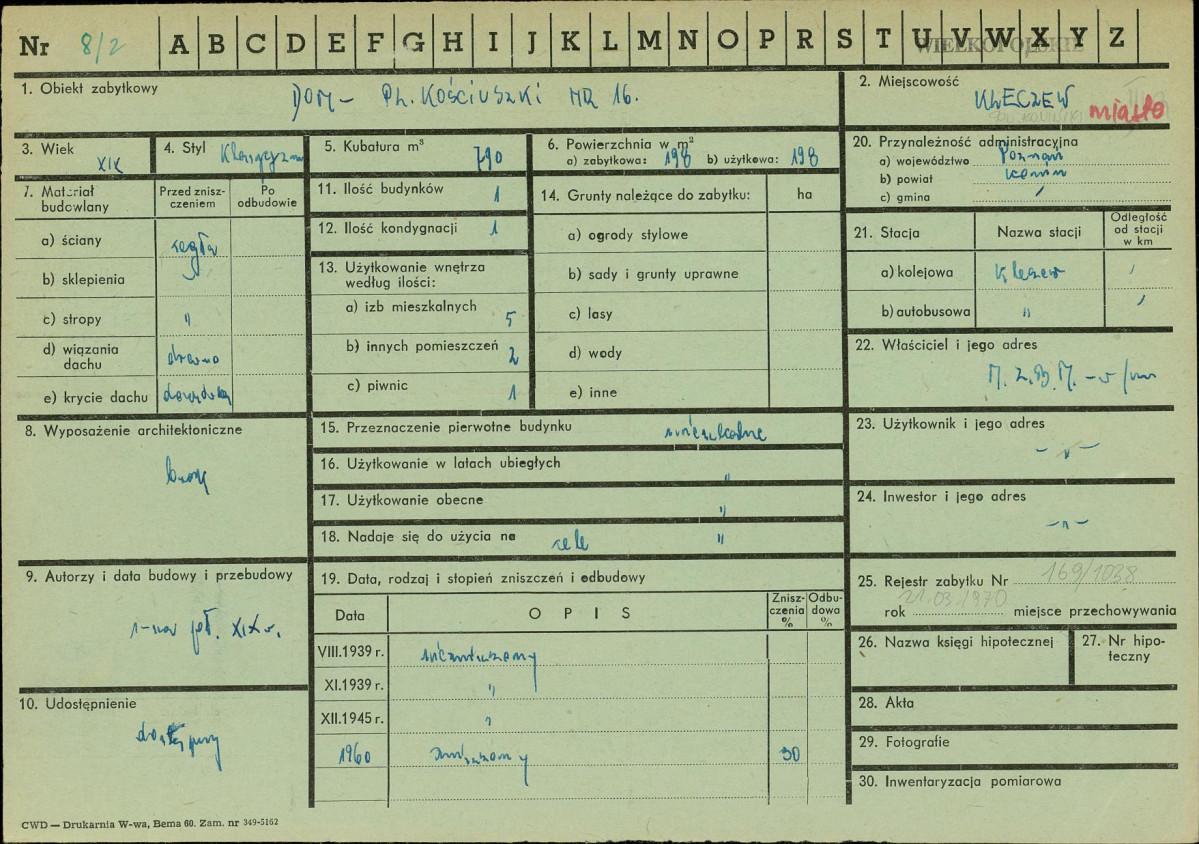 Nr 8/2 A B C D E F G H I J K L M N O P R S T U V W X Y Z
WIELKOPOLSKIE
1. Obiekt zabytkowy
DOM - PL. KOŚCIUSZKI NR 16.
2. Miejscowość
KLECZEW miasto
3. Wiek XIX
4. Styl Klasycyzm
5. Kubatura m³ 790
6. Powierzchnia w m²
a) zabytkowa: 198 b) użytkowa: 198
20. Przynależność administracyjna
a) województwo Poznań
b) powiat Konin
c) gmina /
7. Materiał budowlany
Przed zniszczeniem
Po odbudowie
a) ściany cegła
b) sklepienia
c) stropy "
d) wiązania dachu drewno
e) krycie dachu dachówka
11. Ilość budynków 1
12. Ilość kondygnacji 1
13. Użytkowanie wnętrza
według ilości:
a) izb mieszkalnych 5
b) innych pomieszczeń 2
c) piwnic 1
14. Grunty należące do zabytku: ha
a) ogrody stylowe
b) sady i grunty uprawne
c) lasy
d) wody
e) inne
21. Stacja Nazwa stacji
Odległość od stacji w km
a) kolejowa Kleczew /
b) autobusowa " /
22. Właściciel i jego adres
M.Z.B.M.
8. Wyposażenie architektoniczne
brak
15. Przeznaczenie pierwotne budynku mieszkalne
16. Użytkowanie w latach ubiegłych "
17. Użytkowanie obecne "
18. Nadaje się do użycia na cele "
23. Użytkownik i jego adres
-"-
24. Inwestor i jego adres
-"-
9. Autorzy i data budowy i przebudowy
1-sza poł. XIX w.
19. Data, rodzaj i stopień zniszczeń i odbudowy
Data OPIS Zniszczenia % Odbudowa %
VIII.1939 r. niezniszczony
XI.1939 r. "
XII.1945 r. "
1960 zniszczony 30
25. Rejestr zabytku Nr 169/1038
rok 21.03.1970 miejsce przechowywania
26. Nazwa księgi hipotecznej
27. Nr hipoteczny
28. Akta
29. Fotografie
30. Inwentaryzacja pomiarowa
10. Udostępnienie
dostępny
CWD — Drukarnia W-wa, Bema 60. Zam. nr 349-5162